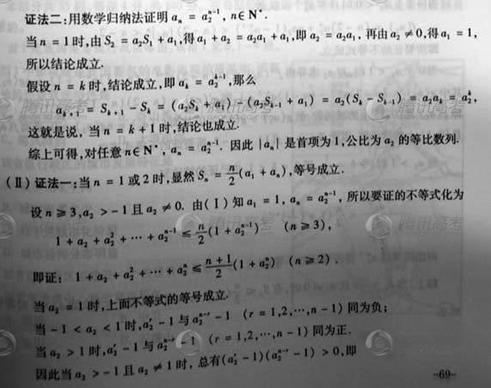 证法二:用数学归纳法证明 aₙ = a₂ⁿ⁻¹, n∈N*.
当 n = 1 时,由 S₂ = a₂S₁ + a₁,得 a₁ + a₂ = a₂a₁ + a₁,即 a₂ = a₂a₁,再由 a₂ ≠ 0,得 a₁ = 1,
所以结论成立.
假设 n = k 时,结论成立,即 aₖ = a₂ᵏ⁻¹,那么
aₖ₊₁ = Sₖ₊₁ - Sₖ = (a₂Sₖ + a₁) - (a₂Sₖ₋₁ + a₁) = a₂(Sₖ - Sₖ₋₁) = a₂aₖ = a₂ᵏ,
这就是说,当 n = k + 1 时,结论也成立.
综上可得,对任意 n∈N*, aₙ = a₂ⁿ⁻¹. 因此 {aₙ} 是首项为1,公比为 a₂ 的等比数列.
(Ⅱ) 证法一:当 n = 1 或 2 时,显然 Sₙ = n/2 (a₁ + aₙ),等号成立.
设 n ≥ 3, a₂ > -1 且 a₂ ≠ 0. 由(Ⅰ)知 a₁ = 1, aₙ = a₂ⁿ⁻¹,所以要证的不等式化为
1 + a₂ + a₂² + ⋯ + a₂ⁿ⁻¹ ≤ n/2 (1 + a₂ⁿ⁻¹) (n ≥ 3),
即证: 1 + a₂ + a₂² + ⋯ + a₂ⁿ ≤ (n+1)/2 (1 + a₂ⁿ) (n ≥ 2).
当 a₂ = 1 时,上面不等式的等号成立.
当 -1 < a₂ < 1 时, a₂ʳ - 1 与 a₂ⁿ⁻ʳ - 1 (r = 1,2,⋯,n - 1) 同为负;
当 a₂ > 1 时, a₂ʳ - 1 与 a₂ⁿ⁻ʳ - 1 (r = 1,2,⋯,n - 1) 同为正.
因此当 a₂ > -1 且 a₂ ≠ 1 时,总有 (a₂ʳ - 1)(a₂ⁿ⁻ʳ - 1) > 0,即
-69-